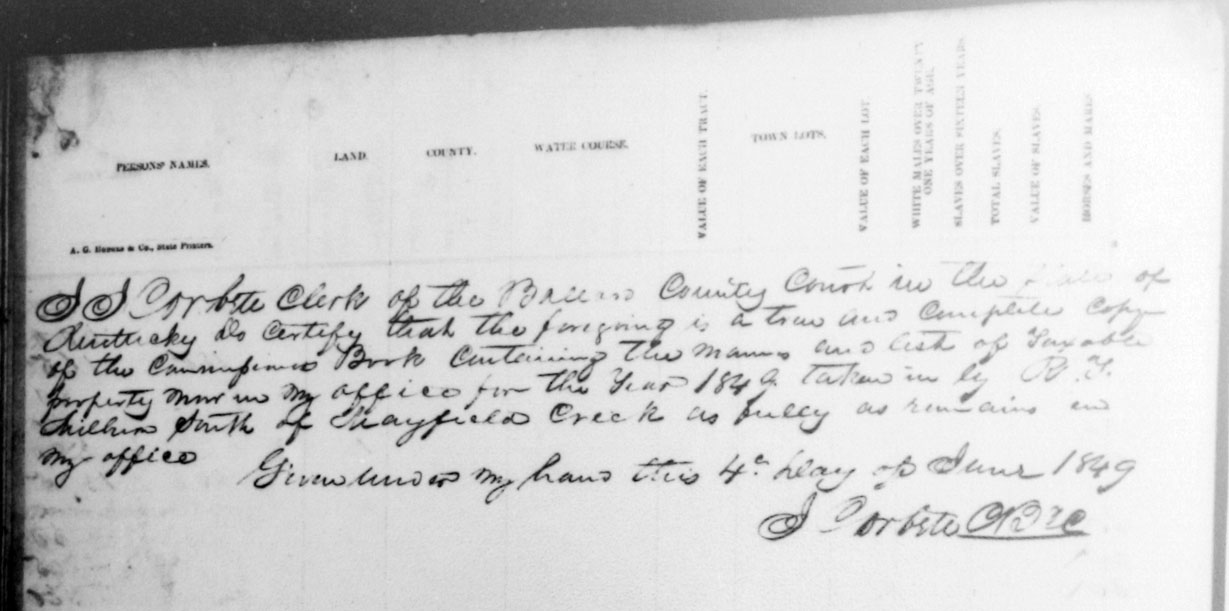 PERSONS' NAMES.
LAND.
COUNTY.
WATER COURSE.
VALUE OF EACH TRACT.
TOWN LOTS.
VALUE OF EACH LOT.
WHITE MALES OVER TWENTY ONE YEARS OF AGE.
SLAVES OVER SIXTEEN YEARS.
TOTAL SLAVES.
VALUE OF SLAVES.
HORSES AND MARES.
A. G. Hodges & Co., State Printers.
I J Corbett Clerk of the Ballard County Court in the State of
Kentucky do certify that the foregoing is a true and complete copy
of the Commissioners Book Containing the names and list of Taxable
property now in my office for the Year 1849 taken in by R. Y.
South of Mayfield Creek as fully as remains in
my office
Given under my hand this 4th day of June 1849
J Corbett